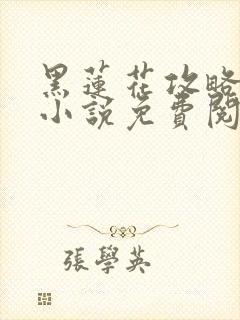 黑蓮花攻略
小說免費閱
張學英